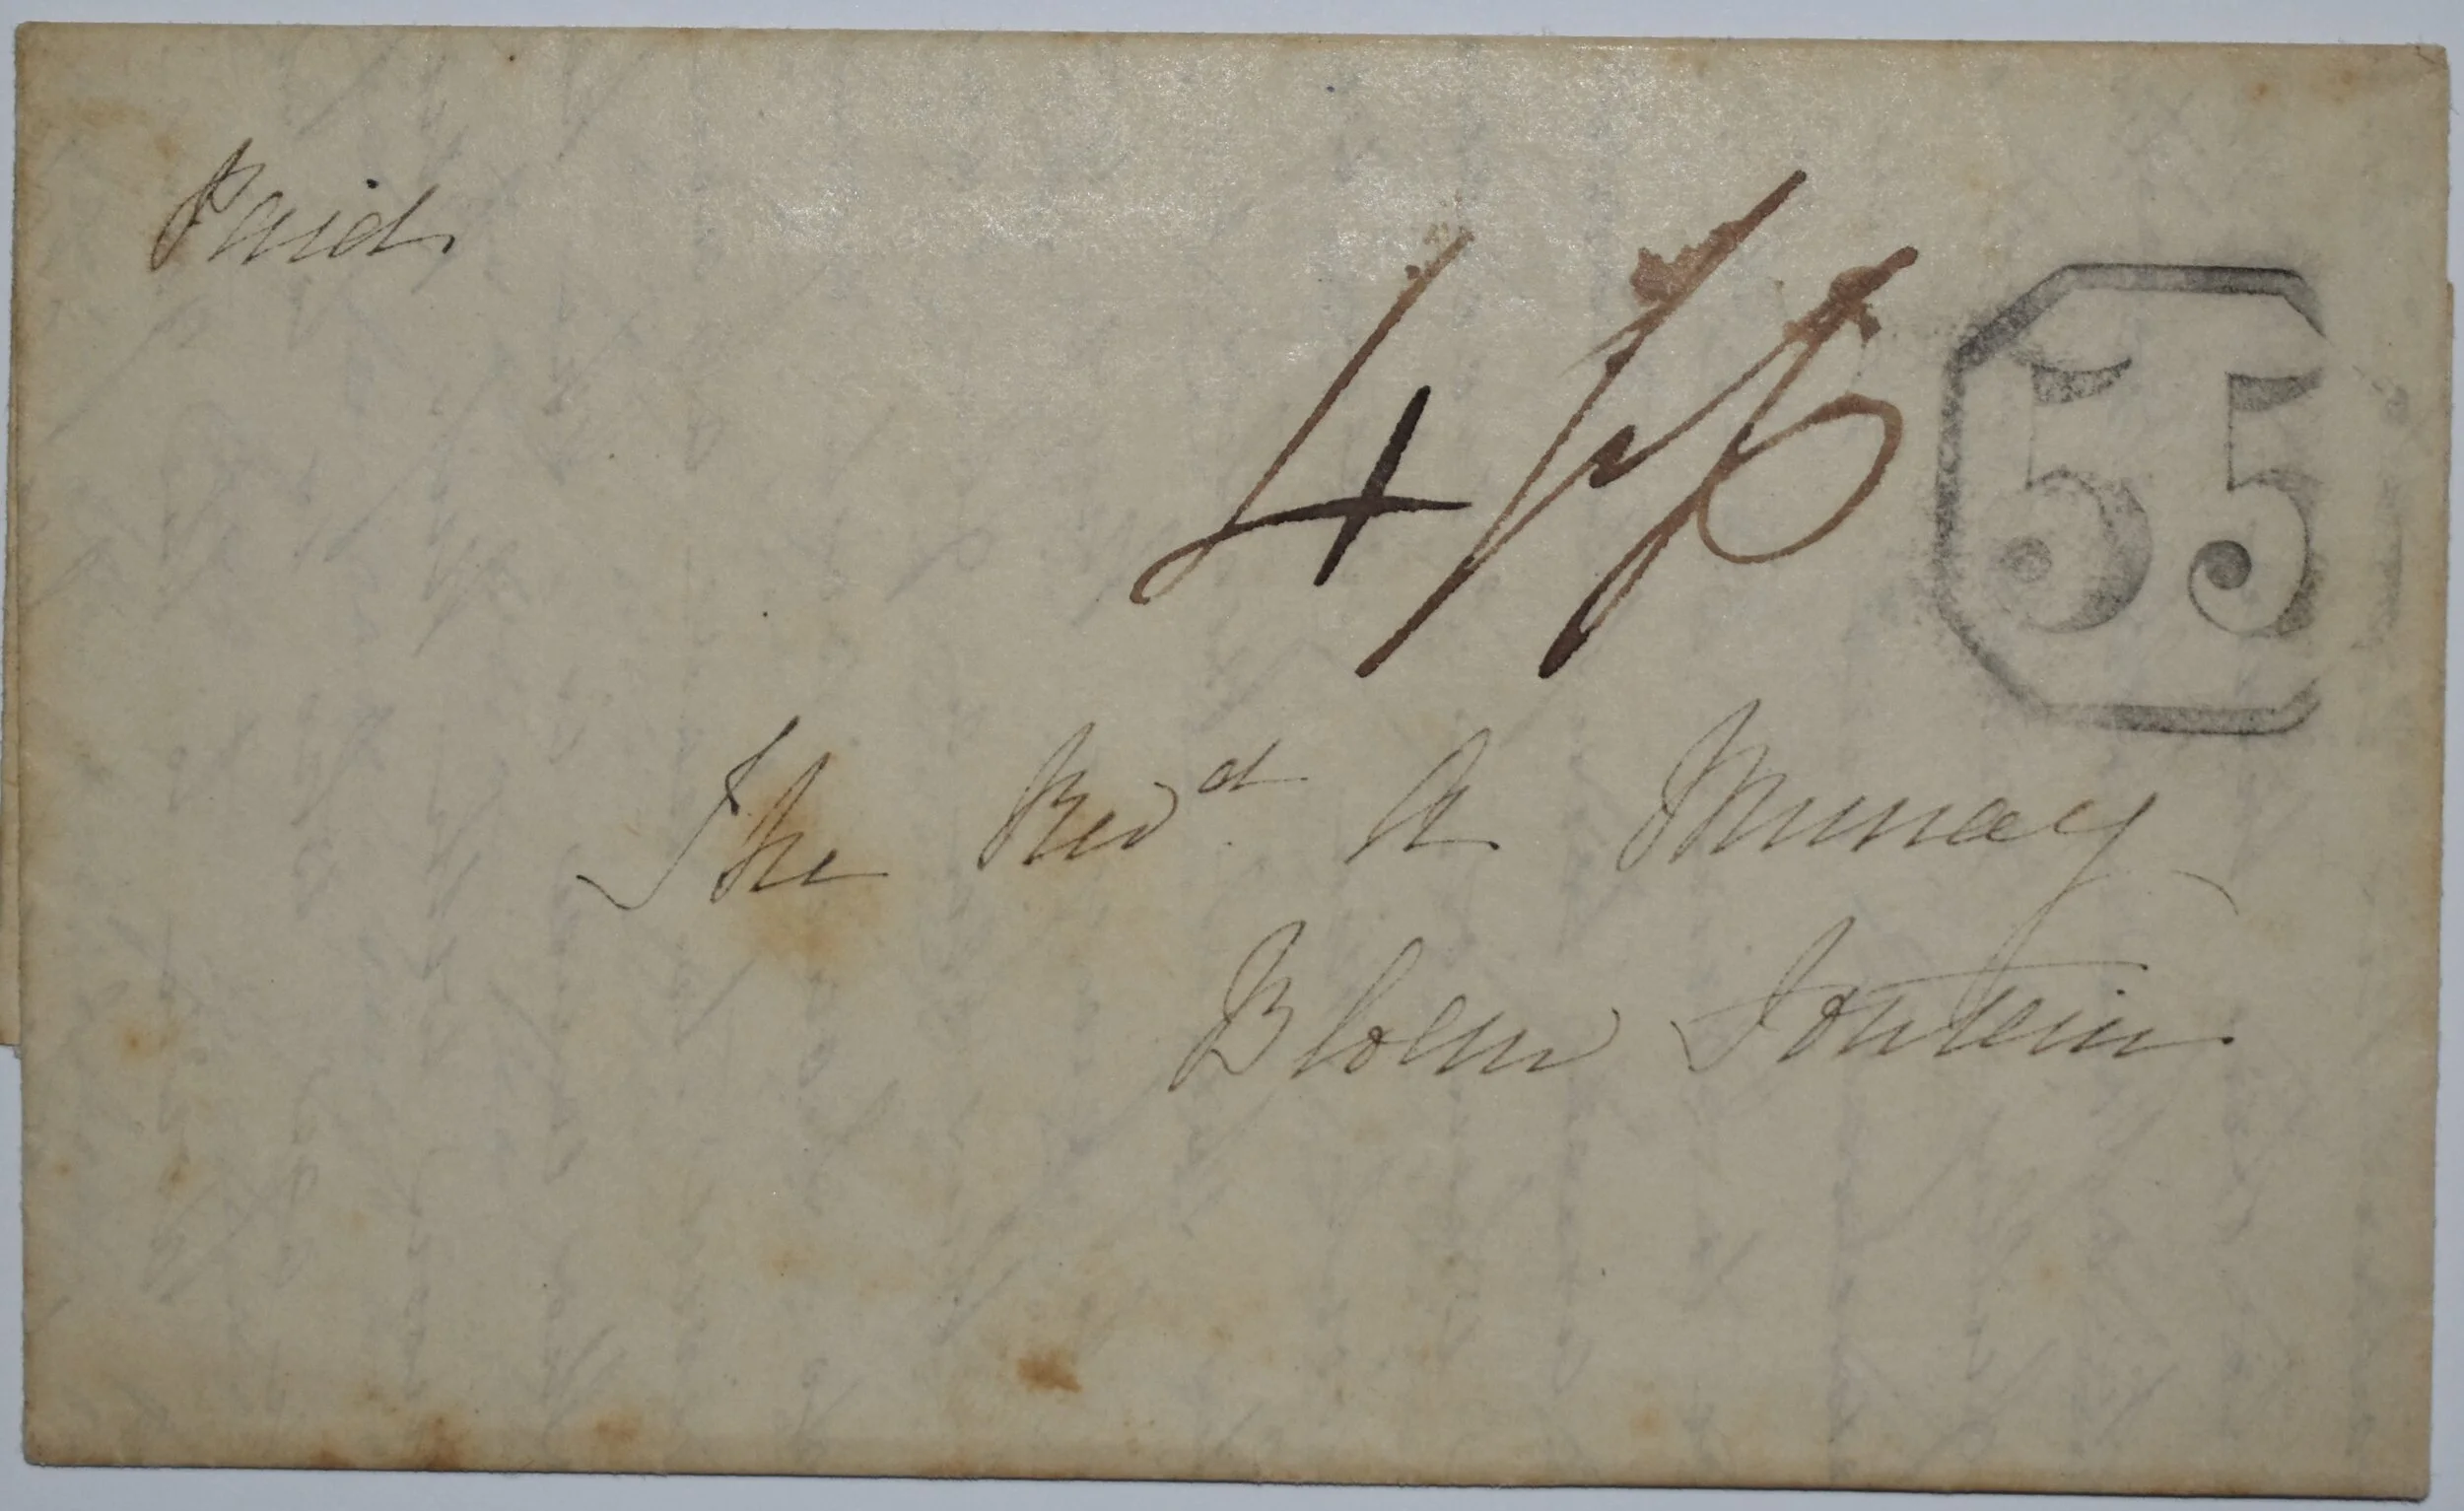 Paid
4/6
55
The Revd. A Murray
Bloem Fontein